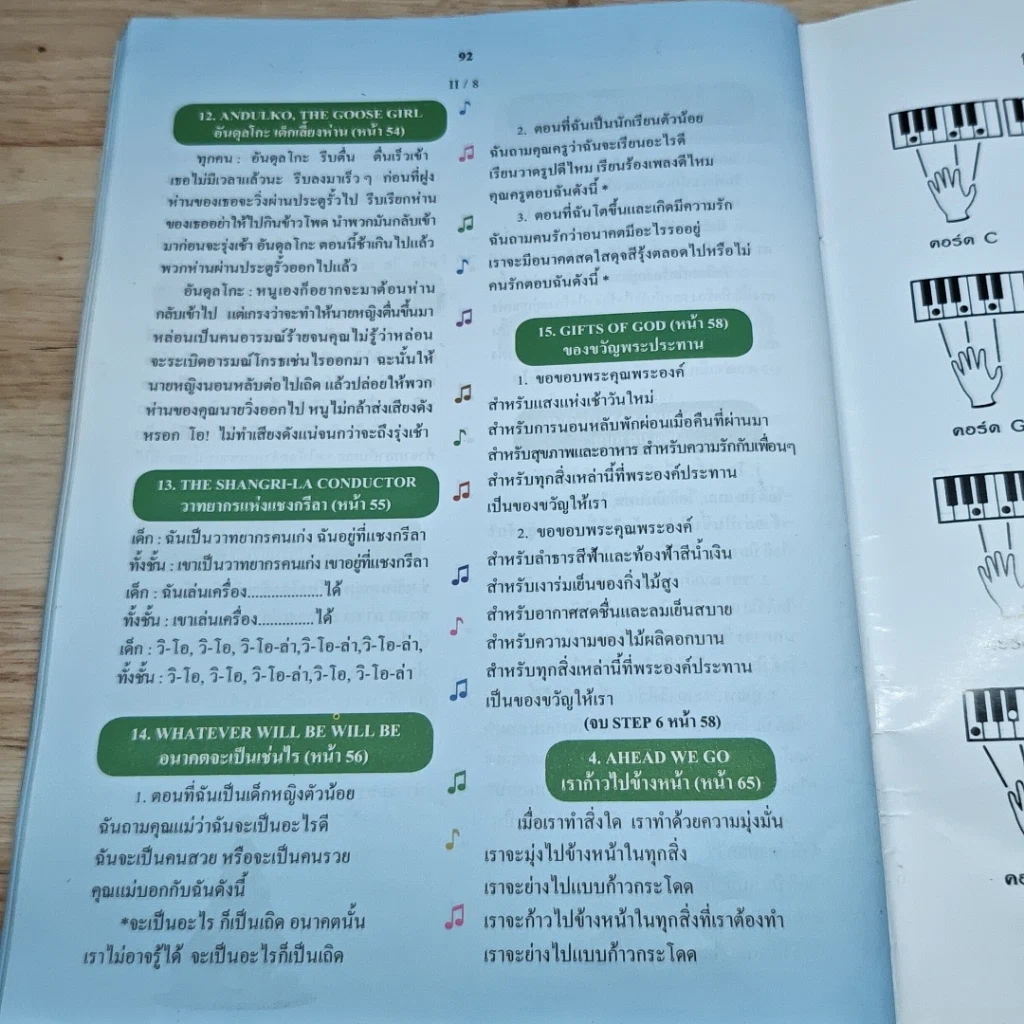 92
II / 8
12. ANDULKO, THE GOOSE GIRL
อันดุลโกะ เด็กเลี้ยงห่าน (หน้า 54)
ทุกคน : อันดุลโกะ รีบตื่น ตื่นเร็วเข้า
เธอไม่มีเวลาแล้วนะ รีบลงมาเร็ว ๆ ก่อนที่ฝูง
ห่านของเธอจะวิ่งผ่านประตูรั้วไป รีบเรียกห่าน
ของเธออย่าให้ไปกินข้าวโพด นำพวกมันกลับเข้า
มาก่อนจะรุ่งเช้า อันดุลโกะ ตอนนี้ช้าเกินไปแล้ว
พวกห่านผ่านประตูรั้วออกไปแล้ว
อันดุลโกะ : หนูเองก็อยากจะมาต้อนห่าน
กลับเข้าไป แต่เกรงว่าจะทำให้นายหญิงตื่นขึ้นมา
หล่อนเป็นคนอารมณ์ร้ายจนคุณไม่รู้ว่าหล่อน
จะระเบิดอารมณ์โกรธเช่นไรออกมา ฉะนั้นให้
นายหญิงนอนหลับต่อไปเถิด แล้วปล่อยให้พวก
ห่านของคุณนายวิ่งออกไป หนูไม่กล้าส่งเสียงดัง
หรอก โอ! ไม่ทำเสียงดังแน่จนกว่าจะถึงรุ่งเช้า
13. THE SHANGRI-LA CONDUCTOR
วาทยากรแห่งแชงกรีลา (หน้า 55)
เด็ก : ฉันเป็นวาทยากรคนเก่ง ฉันอยู่ที่แชงกรีลา
ทั้งชั้น : เขาเป็นวาทยากรคนเก่ง เขาอยู่ที่แชงกรีลา
เด็ก : ฉันเล่นเครื่อง.................ได้
ทั้งชั้น : เขาเล่นเครื่อง.............ได้
เด็ก : วิ-โอ, วิ-โอ, วิ-โอ-ล่า,วิ-โอ-ล่า,วิ-โอ-ล่า,
ทั้งชั้น : วิ-โอ, วิ-โอ, วิ-โอ-ล่า,วิ-โอ, วิ-โอ-ล่า
14. WHATEVER WILL BE WILL BE
อนาคตจะเป็นเช่นไร (หน้า 56)
1. ตอนที่ฉันเป็นเด็กหญิงตัวน้อย
ฉันถามคุณแม่ว่าฉันจะเป็นอะไรดี
ฉันจะเป็นคนสวย หรือจะเป็นคนรวย
คุณแม่บอกกับฉันดังนี้
*จะเป็นอะไร ก็เป็นเถิด อนาคตนั้น
เราไม่อาจรู้ได้ จะเป็นอะไรก็เป็นเถิด
2. ตอนที่ฉันเป็นนักเรียนตัวน้อย
ฉันถามคุณครูว่าฉันจะเรียนอะไรดี
เรียนวาดรูปดีไหม เรียนร้องเพลงดีไหม
คุณครูตอบฉันดังนี้ *
3. ตอนที่ฉันโตขึ้นและเกิดมีความรัก
ฉันถามคนรักว่าอนาคตมีอะไรรออยู่
เราจะมีอนาคตสดใสดุจสีรุ้งตลอดไปหรือไม่
คนรักตอบฉันดังนี้ *
15. GIFTS OF GOD (หน้า 58)
ของขวัญพระประทาน
1. ขอขอบพระคุณพระองค์
สำหรับแสงแห่งเช้าวันใหม่
สำหรับการนอนหลับพักผ่อนเมื่อคืนที่ผ่านมา
สำหรับสุขภาพและอาหาร สำหรับความรักกับเพื่อนๆ
สำหรับทุกสิ่งเหล่านี้ที่พระองค์ประทาน
เป็นของขวัญให้เรา
2. ขอขอบพระคุณพระองค์
สำหรับลำธารสีฟ้าและท้องฟ้าสีน้ำเงิน
สำหรับเงาร่มเย็นของกิ่งไม้สูง
สำหรับอากาศสดชื่นและลมเย็นสบาย
สำหรับความงามของไม้ผลิดอกบาน
สำหรับทุกสิ่งเหล่านี้ที่พระองค์ประทาน
เป็นของขวัญให้เรา
(จบ STEP 6 หน้า 58)
4. AHEAD WE GO
เราก้าวไปข้างหน้า (หน้า 65)
เมื่อเราทำสิ่งใด เราทำด้วยความมุ่งมั่น
เราจะมุ่งไปข้างหน้าในทุกสิ่ง
เราจะย่างไปแบบก้าวกระโดด
เราจะก้าวไปข้างหน้าในทุกสิ่งที่เราต้องทำ
เราจะย่างไปแบบก้าวกระโดด
คอร์ด C
คอร์ด G